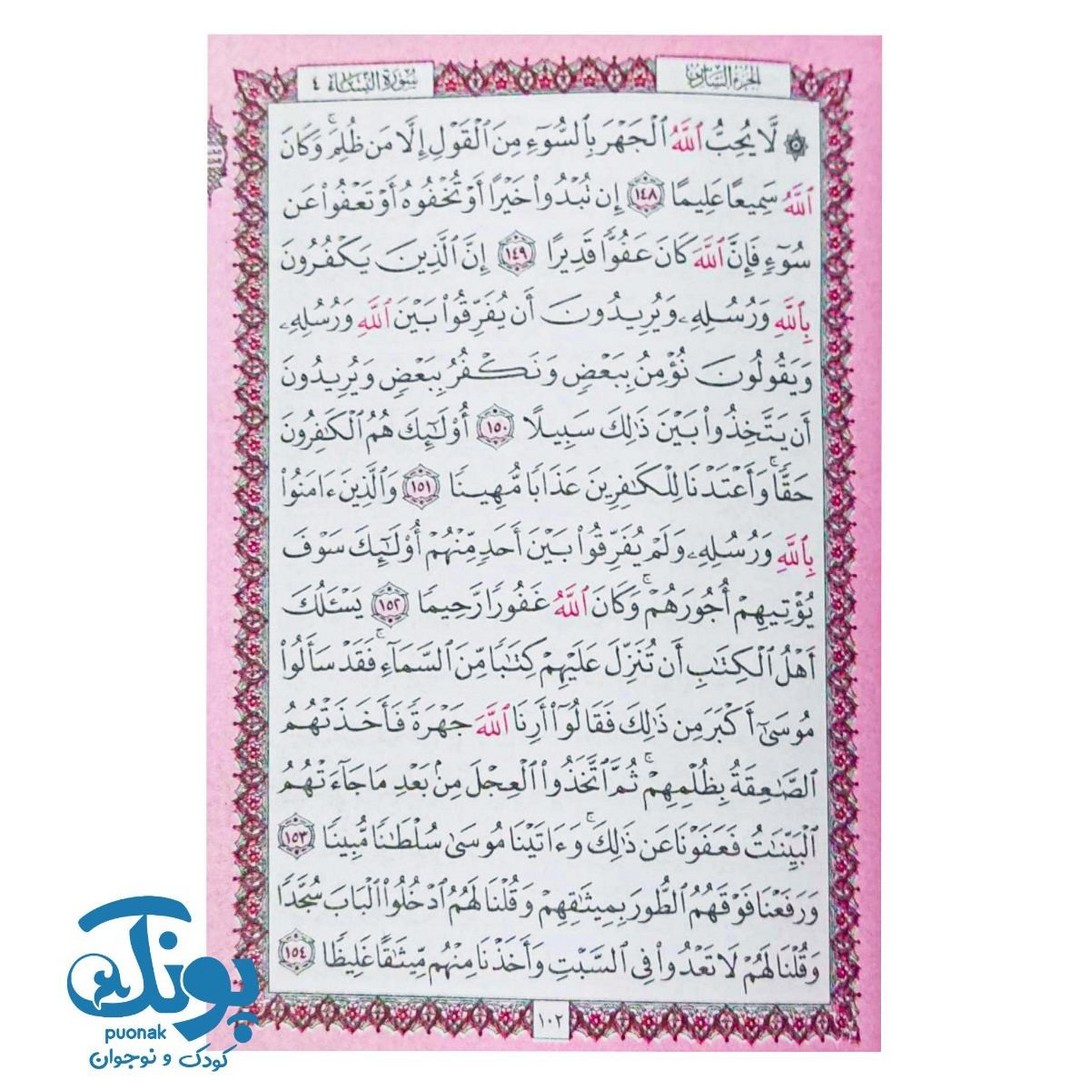 الجزء السادس
سورة النساء ٤
۞ لَّا يُحِبُّ ٱللَّهُ ٱلْجَهْرَ بِٱلسُّوٓءِ مِنَ ٱلْقَوْلِ إِلَّا مَن ظُلِمَ ۚ وَكَانَ
ٱللَّهُ سَمِيعًا عَلِيمًا ١٤٨ إِن تُبْدُوا۟ خَيْرًا أَوْ تُخْفُوهُ أَوْ تَعْفُوا۟ عَن
سُوٓءٍ فَإِنَّ ٱللَّهَ كَانَ عَفُوًّا قَدِيرًا ١٤٩ إِنَّ ٱلَّذِينَ يَكْفُرُونَ
بِٱللَّهِ وَرُسُلِهِۦ وَيُرِيدُونَ أَن يُفَرِّقُوا۟ بَيْنَ ٱللَّهِ وَرُسُلِهِۦ
وَيَقُولُونَ نُؤْمِنُ بِبَعْضٍ وَنَكْفُرُ بِبَعْضٍ وَيُرِيدُونَ
أَن يَتَّخِذُوا۟ بَيْنَ ذَٰلِكَ سَبِيلًا ١٥٠ أُو۟لَٰٓئِكَ هُمُ ٱلْكَٰفِرُونَ
حَقًّا ۚ وَأَعْتَدْنَا لِلْكَٰفِرِينَ عَذَابًا مُّهِينًا ١٥١ وَٱلَّذِينَ ءَامَنُوا۟
بِٱللَّهِ وَرُسُلِهِۦ وَلَمْ يُفَرِّقُوا۟ بَيْنَ أَحَدٍ مِّنْهُمْ أُو۟لَٰٓئِكَ سَوْفَ
يُؤْتِيهِمْ أُجُورَهُمْ ۗ وَكَانَ ٱللَّهُ غَفُورًا رَّحِيمًا ١٥٢ يَسْـَٔلُكَ
أَهْلُ ٱلْكِتَٰبِ أَن تُنَزِّلَ عَلَيْهِمْ كِتَٰبًا مِّنَ ٱلسَّمَآءِ ۚ فَقَدْ سَأَلُوا۟
مُوسَىٰٓ أَكْبَرَ مِن ذَٰلِكَ فَقَالُوٓا۟ أَرِنَا ٱللَّهَ جَهْرَةً فَأَخَذَتْهُمُ
ٱلصَّٰعِقَةُ بِظُلْمِهِمْ ۚ ثُمَّ ٱتَّخَذُوا۟ ٱلْعِجْلَ مِنۢ بَعْدِ مَا جَآءَتْهُمُ
ٱلْبَيِّنَٰتُ فَعَفَوْنَا عَن ذَٰلِكَ ۚ وَءَاتَيْنَا مُوسَىٰ سُلْطَٰنًا مُّبِينًا ١٥٣
وَرَفَعْنَا فَوْقَهُمُ ٱلطُّورَ بِمِيثَٰقِهِمْ وَقُلْنَا لَهُمُ ٱدْخُلُوا۟ ٱلْبَابَ سُجَّدًا
وَقُلْنَا لَهُمْ لَا تَعْدُوا۟ فِى ٱلسَّبْتِ وَأَخَذْنَا مِنْهُم مِّيثَٰقًا غَلِيظًا ١٥٤
١٠٢
پونک
puonak
کودک و نوجوان